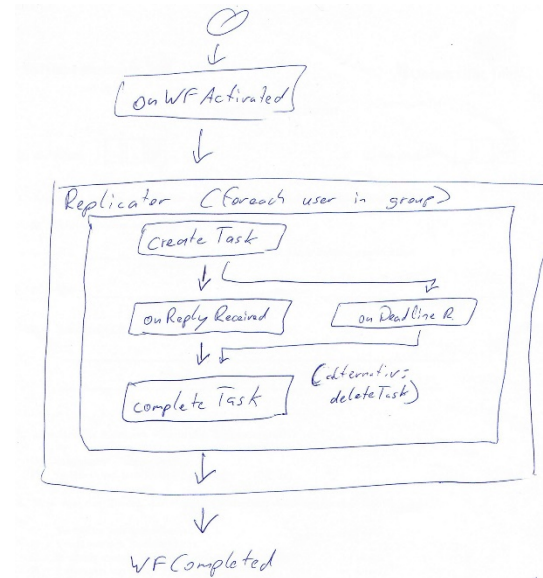 onWFActivated
Replicator (foreach user in group)
Create Task
onReplyReceived
onDeadline R.
complete Task
(alternativ:
deleteTask)
WFCompleted